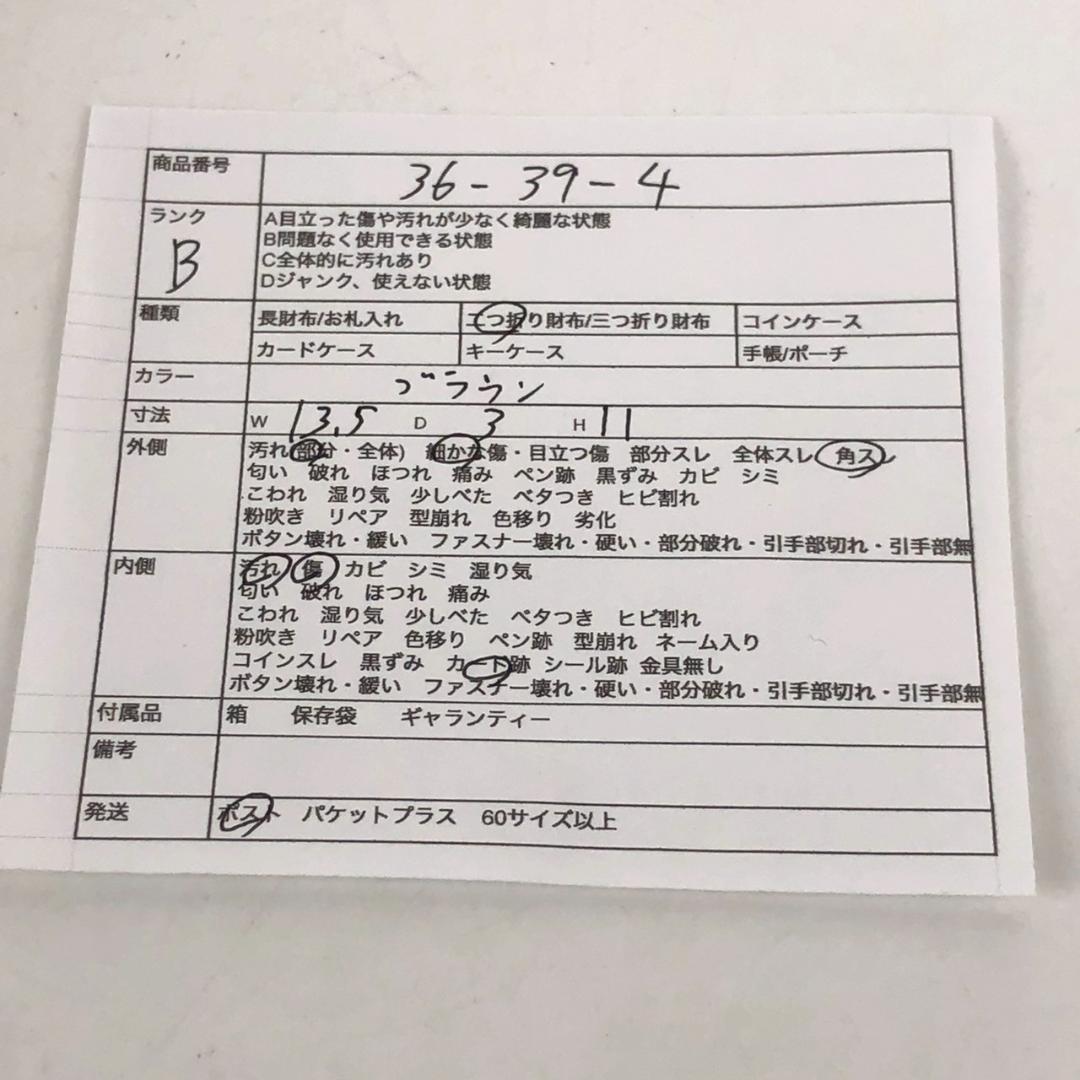 商品番号 36-39-4
ランク B
A目立った傷や汚れが少なく綺麗な状態
B問題なく使用できる状態
C全体的に汚れあり
Dジャンク、使えない状態
種類 長財布/お札入れ 二つ折り財布/三つ折り財布 コインケース
カードケース キーケース 手帳/ポーチ
カラー ブラウン
寸法 W 13.5 D 3 H 11
外側 汚れ(部分・全体) 細かな傷・目立つ傷 部分スレ 全体スレ 角スレ
匂い 破れ ほつれ 痛み ペン跡 黒ずみ カビ シミ
こわれ 湿り気 少しべた ベタつき ヒビ割れ
粉吹き リペア 型崩れ 色移り 劣化
ボタン壊れ・緩い ファスナー壊れ・硬い・部分破れ・引手部切れ・引手部無
内側 汚れ 傷 カビ シミ 湿り気
匂い 破れ ほつれ 痛み
こわれ 湿り気 少しべた ベタつき ヒビ割れ
粉吹き リペア 色移り ペン跡 型崩れ ネーム入り
コインスレ 黒ずみ カード跡 シール跡 金具無し
ボタン壊れ・緩い ファスナー壊れ・硬い・部分破れ・引手部切れ・引手部無
付属品 箱 保存袋 ギャランティー
備考
発送 ポスト パケットプラス 60サイズ以上